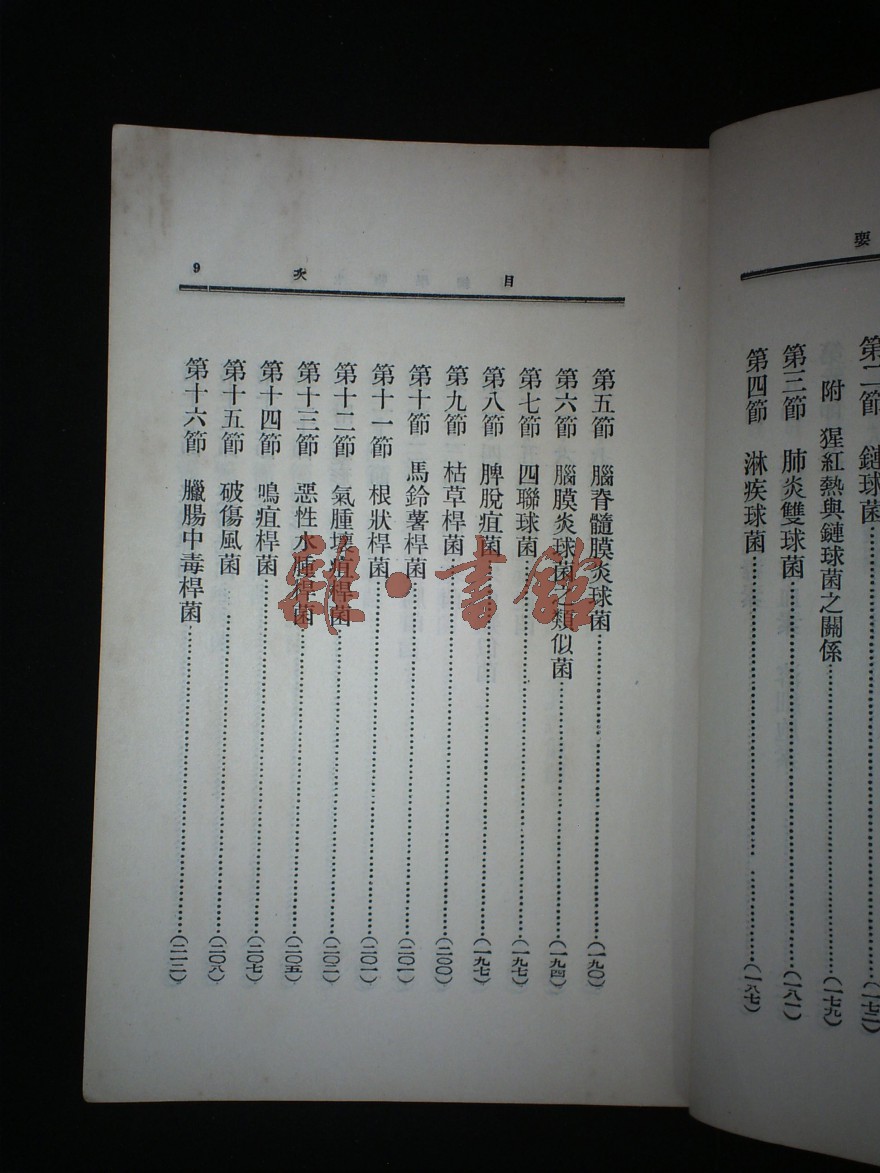 要
第二節　鏈球菌……(一七二)
附　猩紅熱與鏈球菌之關係……(一七九)
第三節　肺炎雙球菌……(一八一)
第四節　淋疾球菌……(一八七)
目次　9
第五節　腦脊髓膜炎球菌……(一九〇)
第六節　腦膜炎球菌之類似菌……(一九四)
第七節　四聯球菌……(一九七)
第八節　脾脫疽菌……(一九七)
第九節　枯草桿菌……(二〇〇)
第十節　馬鈴薯桿菌……(二〇一)
第十一節　根狀桿菌……(二〇一)
第十二節　氣腫壞疽桿菌……(二〇二)
第十三節　惡性水腫桿菌……(二〇五)
第十四節　鳴疽桿菌……(二〇七)
第十五節　破傷風菌……(二〇八)
第十六節　臘腸中毒桿菌……(二一三)
雜·書館